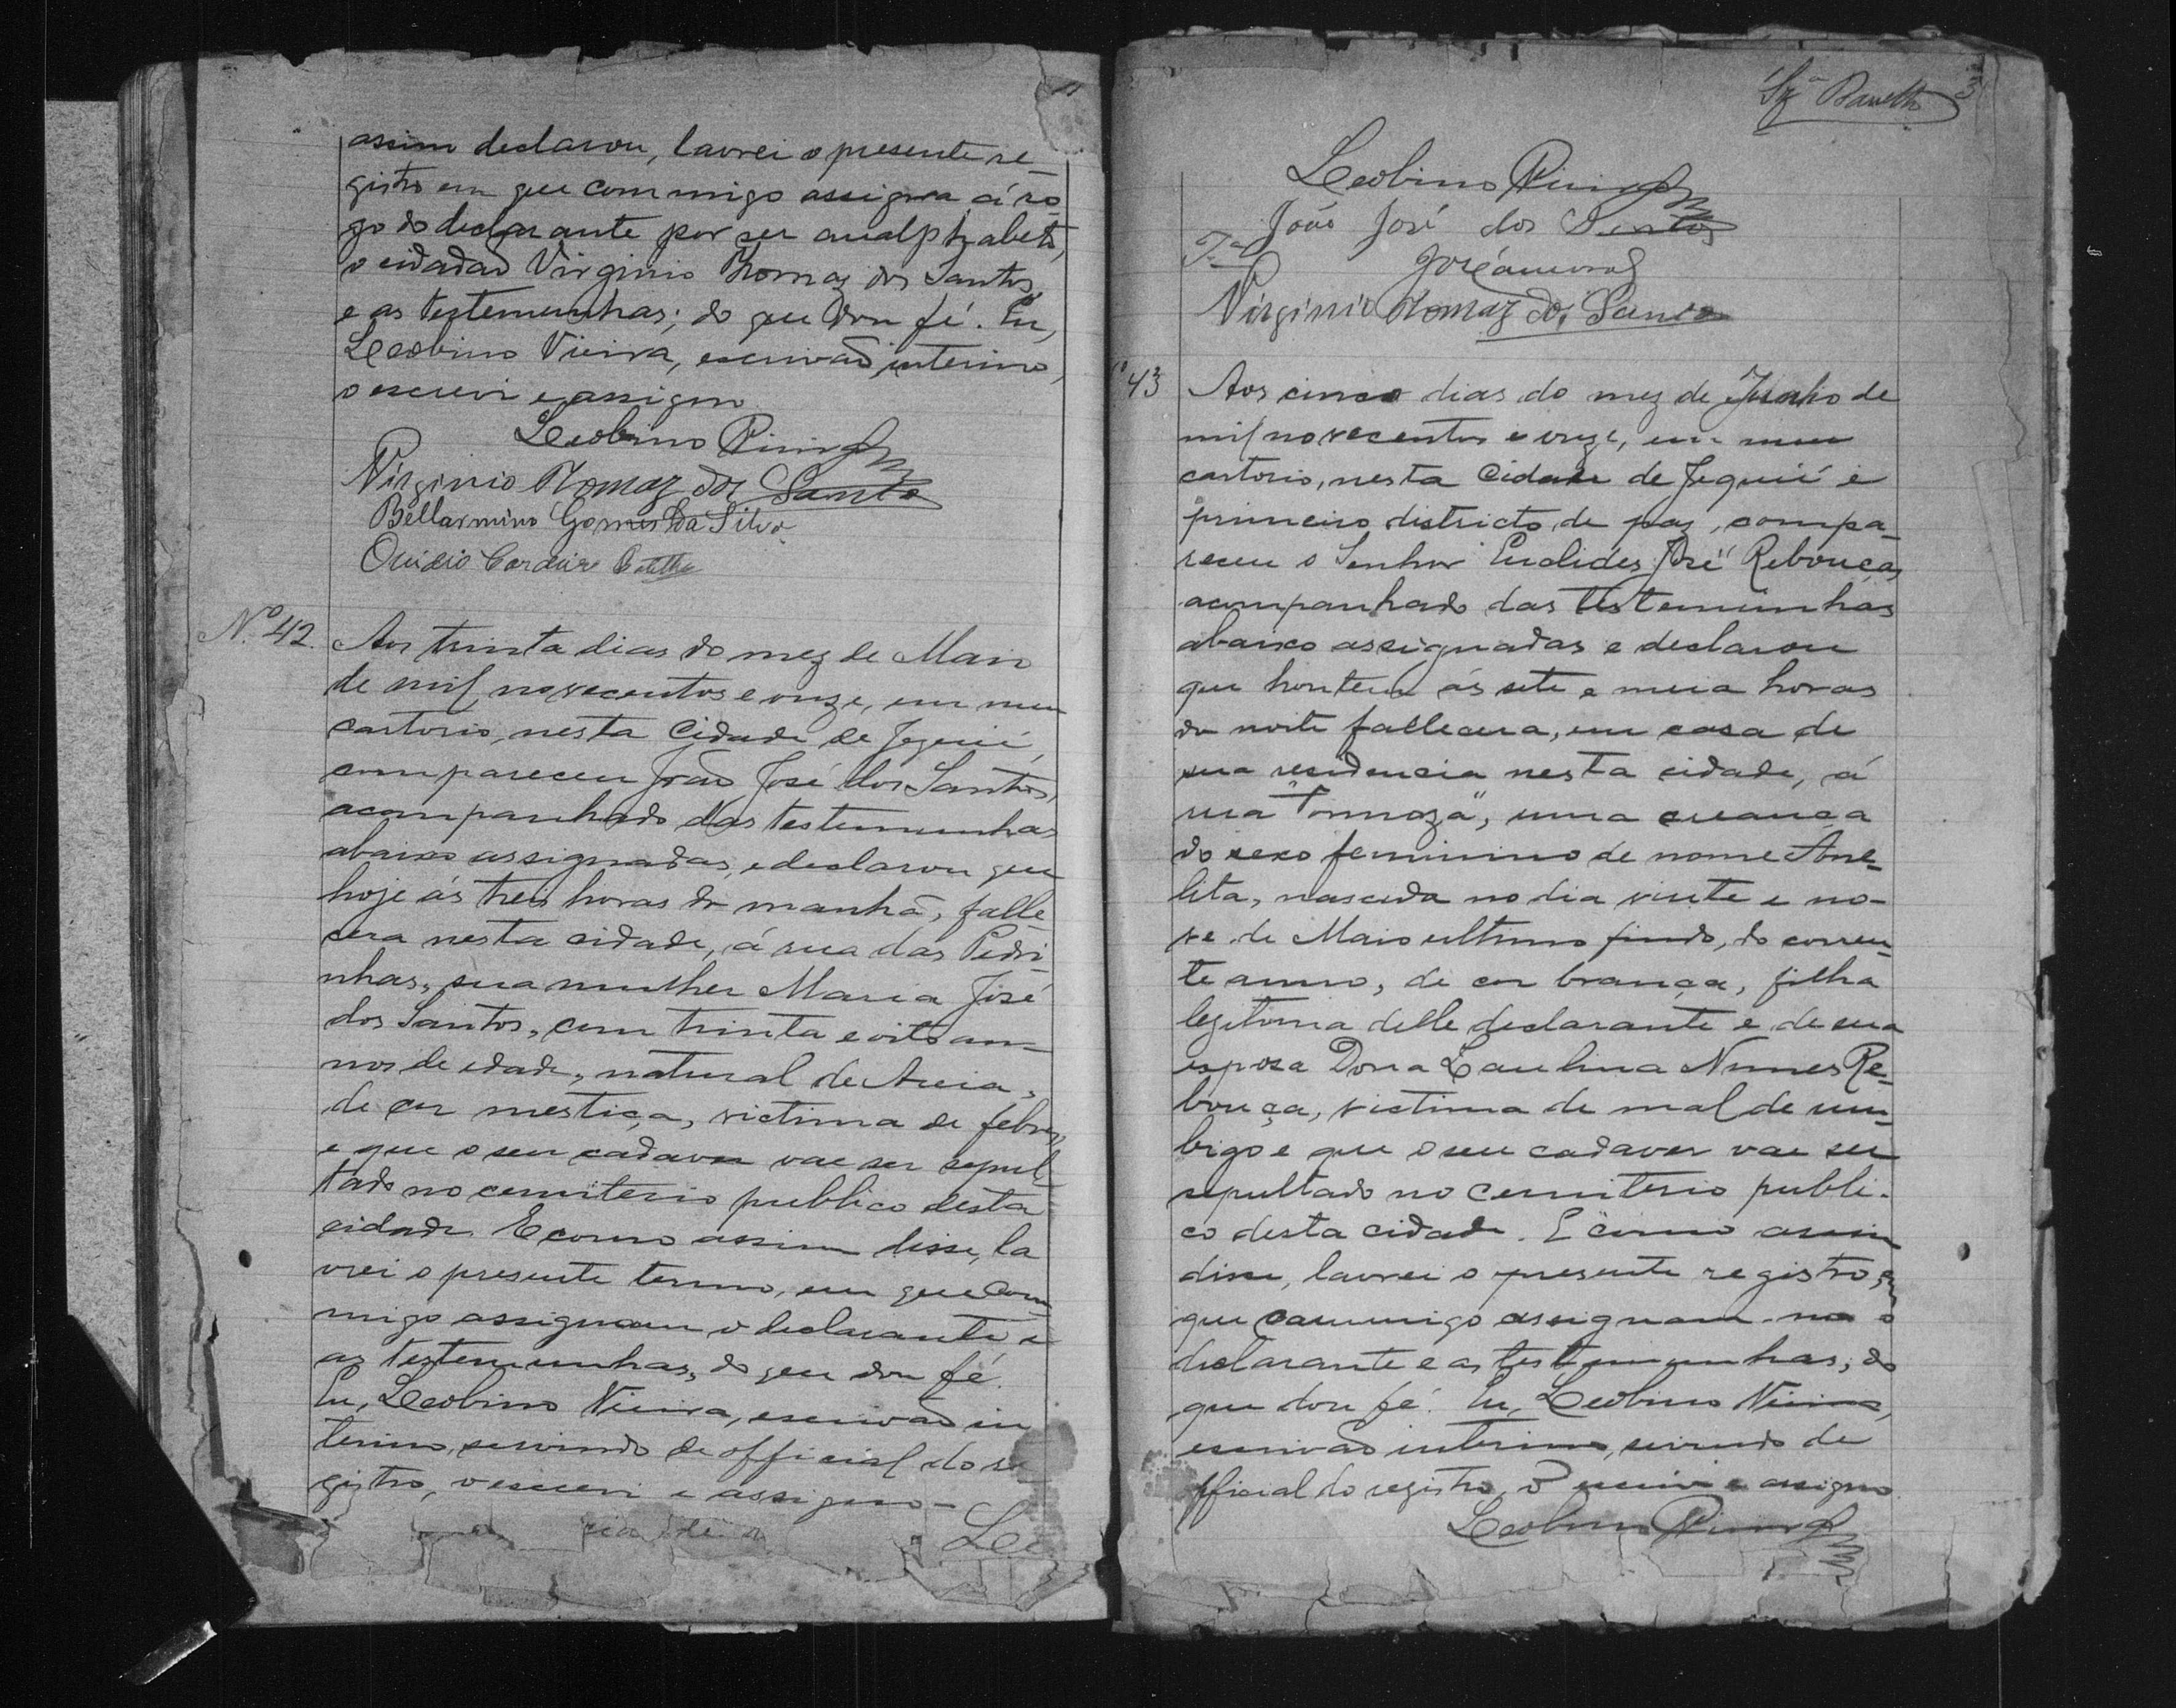 assim declarou, lavrei o presente re-
gistro em que commigo assigna á ro-
go do declarante por ser analphabeto,
o cidadão Virginio Thomaz dos Santos,
e as testemunhas; do que dou fé. Eu,
Leobino Vieira, escrivão interino,
o escrevi e assigno.
Leobino Vieira
Virginio Thomaz dos Santos
Bellarmino Gomes da Silva
Ouidio Cordeiro
Nº 42.
Aos trinta dias do mez de Maio
de mil novecentos e onze, em meu
cartorio, nesta Cidade de Jequié,
compareceu João José dos Santos,
acompanhado das testemunhas
abaixo assignadas, e declarou que
hoje ás tres horas da manhã, falle-
cera nesta cidade, á rua das Pedri-
nhas, sua mulher Maria José
dos Santos, com trinta e oito an-
nos de edade, natural de Areia,
de cor mestiça, victima de febre,
e que o seu cadaver vae ser sepul-
tado no cemiterio publico desta
cidade. E como assim disse, la-
vrei o presente termo, em que com-
migo assignam o declarante e
as testemunhas, do que dou fé.
Eu, Leobino Vieira, escrivão in-
terino, servindo de official do re-
gistro, o escrevi e assigno-
Leo
3
Leobino Vieira
João José dos Santos
Virginio Thomaz dos Santos
43
Aos cinco dias do mez de Junho de
mil novecentos e onze, em meu
cartorio, nesta Cidade de Jequié e
primeiro districto de paz, compa-
receu o Senhor Euclides José Rebouças
acompanhado das testemunhas
abaixo assignadas e declarou
que hontem ás sete e meia horas
da noite fallecera, em casa de
sua residencia nesta cidade, á
rua uma creança
do sexo feminino de nome Ane-
lita, nascida no dia vinte e no-
ve de Maio ultimo findo, do corren-
te anno, de cor branca, filha
legitima delle declarante e de sua
esposa Dona Laulina Nunes Re-
bouça, victima de mal de um-
bigo e que o seu cadaver vae ser
sepultado no Cemiterio publi-
co desta cidade. E como assim
disse, lavrei o presente registro, em
que commigo assignam o
declarante e as testemunhas; do
que dou fé. Eu, Leobino Vieira,
escrivão interino, servindo de
official do registro, o escrevi e assigno
Leobino Vieira